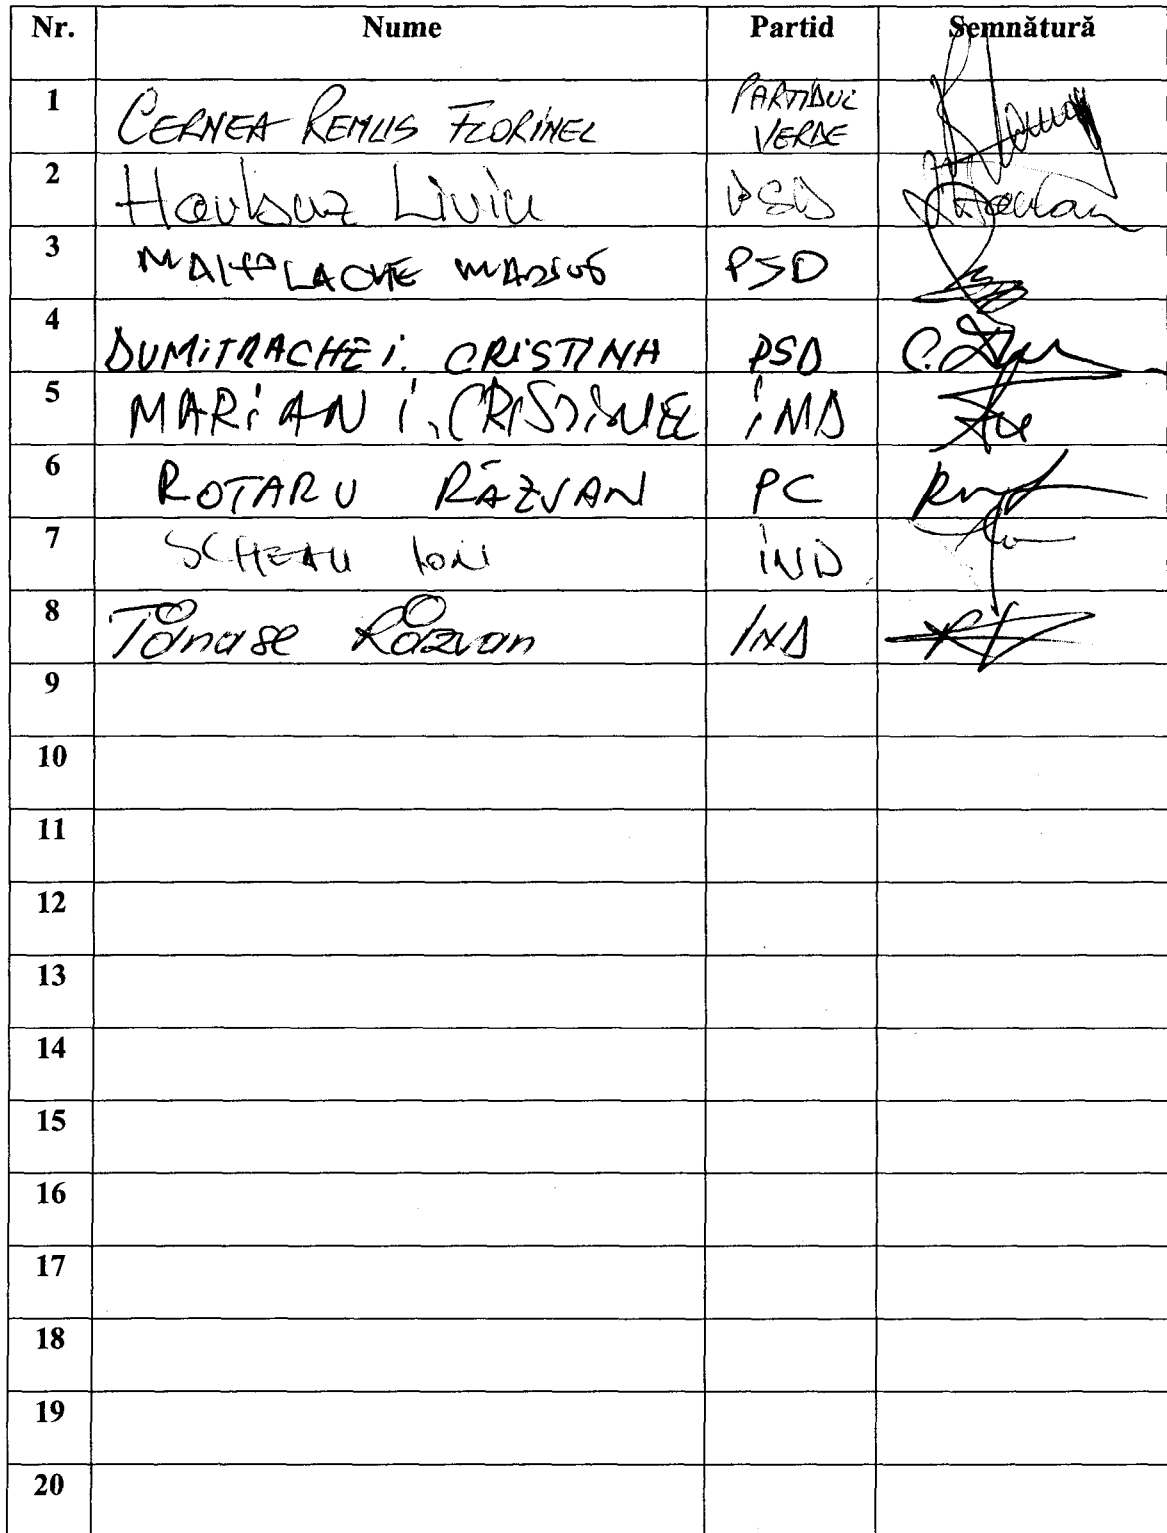 Nr. Nume Partid Semnătură
1 CERNEA REMUS FLORINEL PARTIDUL VERDE
2 Harbuz Liviu PSD
3 MANOLACHE MARIUS PSD
4 DUMITRACHE I. CRISTINA PSD
5 MARIAN I. CRISTINEL IND
6 ROTARU RĂZVAN PC
7 SCHEAU ION IND
8 Tănase Răzvan IND
9
10
11
12
13
14
15
16
17
18
19
20